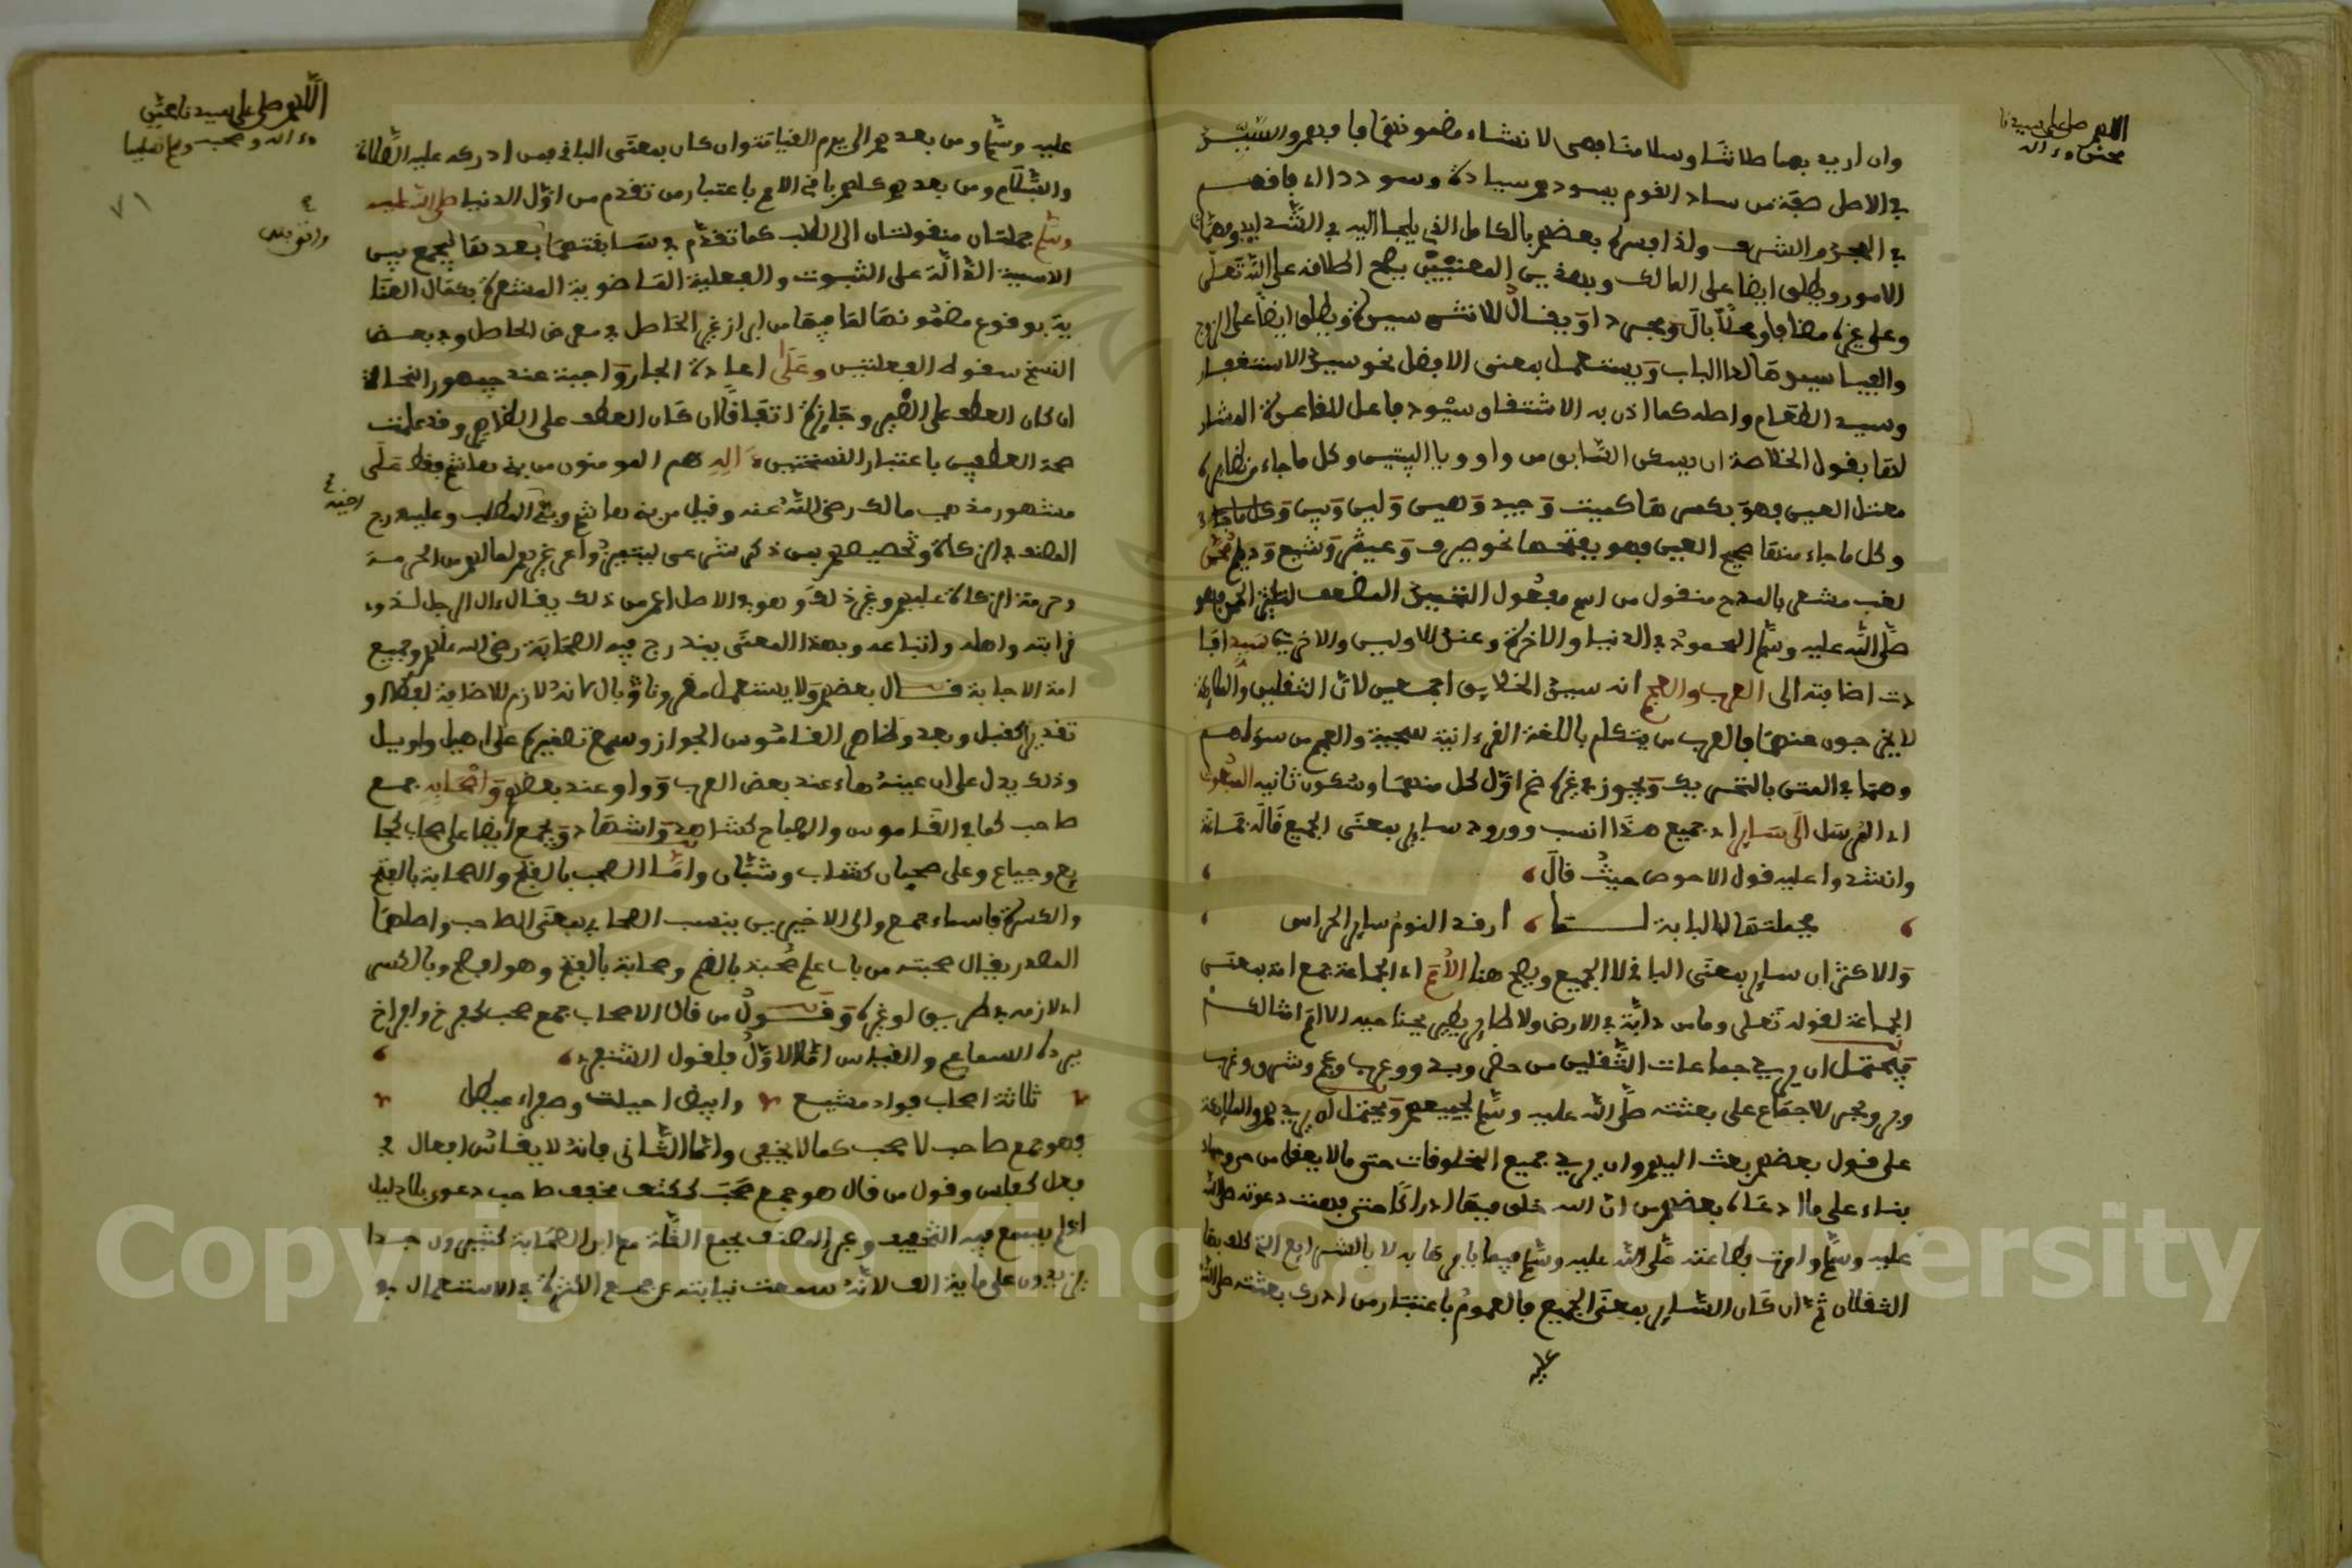 اللهم صل على سيدنا
محمد وءاله
وان اريد بهما طلاقتنا وسلامتنا فهى لانشاء مضمونهما فافهم والسيد
في الاصل صفة من ساد القوم يسودهم سيادة وسوددا اذا فاقهم
في المجد والشرف ولذا فسره بعضهم بالكامل الذي يلجأ اليه في الشدايد وهمات
الامور ويطلق ايضا على المالك وبهذين المعنيين يصح اطلاقه على الله تعلى
وعلى غيره مضافا ومحلا بال ومجردا ويقال للانثى سيدة ويطلق ايضا على الزوج
والفيا سيدها لدا الباب ويستعمل بمعنى الافضل نحو سيد الاستغفار
وسيد الطعام واصله كما اذن به الاشتقاق سيود فاعل للقاعدة المشار
لها بقول الخلاصة ان يسكن السابق من واو ويا البيتين وكل ما جاء من نظايره
معتل العين فهو بكسرها كميت وجيد وهين ولين وبين
وكل ما جاء منها صحيح العين فهو بفتحها نحو صيرف وديلم محمد
لقب مشعر بالمدح منقول من اسم مفعول الفعل المضعف
صلى الله عليه وسلم المحمود في الدنيا والاخرة وعند الاولين والاخرين سيد افا
دت اضافته الى العرب والعجم انه سيد الخلايق اجمعين لان الثقلين والملايكة
لا يخرجون عنهما فالعرب من يتكلم باللغة القرءانية سجية والعجم من سواهم
وهما في المتن بالتحريك ويجوز في غيره ضم اول كل منهما وسكون ثانيه المبعوث
اي المرسل الى ساير اي جميع هذا انسب وورود ساير بمعنى الجميع قاله جماعة
وانشدوا عليه قول الاحوص حيث قال
فجلتها لنا لبابة لما ارقد النوم ساير الحراس
والاكثر ان ساير بمعنى الباقي لا الجميع ويصح هنا الامم اي الجماعة جمع امة بمعنى
الجماعة لقوله تعلى وما من دابة في الارض ولا طاير يطير بجناحيه الا امم امثالكم
فيحتمل ان يريد جماعات الثقلين من حضر وبدو وعرب وعجم وشرق وغرب
وبر وبحر للاجماع على بعثته صلى الله عليه وسلم لجميعهم ويحتمل ان يريدهم والملايكة
على قول بعضهم بعث اليهم وان يريد جميع المخلوقات حتى ما لا يعقل من
بناء على ما ادعاه بعضهم من ان الله خلق فيها ادراكا حتى فهمت دعوته صلى الله
عليه وسلم وامرت بطاعته صلى الله عليه وسلم فيما يامرها به لا بالشرايع التي كلف بها
الثقلان ثم ان كان الساير بمعنى الجميع فالعموم باعتبار من ادرك بعثته صلى الله
عليه
اللهم صل على سيدنا محمد
وءاله وصحبه وسلم تسليما
٧١
عليه وسلم ومن بعدهم الى يوم القيامة وان كان بمعنى الباقي فمن ادركه عليه الصلاة
والسلام ومن بعدهم كلهم باقي الامم باعتبار من تقدم من اول الدنيا صلى الله عليه
وسلم جملتان منقولتان الى الطلب كما تقدم في سابقتهما بعدها ليجمع بين
الاسمية الدالة على الثبوت والفعلية الماضوية المشعرة بكمال العنا
ية بوقوع مضمونها لما فيها من ابراز غير الحاصل في معرض الحاصل وفي بعض
النسخ سقوط الفعليتين وعلى اعادة الجار واجبة عند جمهور النحاة
ان كان العطف على الضمير وجايزة اتفاقا ان كان العطف على الظاهر وقد علمت
صحة العطفين باعتبار النسختين ءاله هم المومنون من بني هاشم فقط على
مشهور مذهب مالك رضي الله عنه وقيل من بني هاشم وبني المطلب وعليه درج
المصنف في الزكاة وتخصيصهم بمن ذكر شرعى ليتميزوا عن غيرهم لما لهم من الحرمة
وحرمة الزكاة عليهم وغير ذلك وهو في الاصل اعم من ذلك يقال ءال الرجل لذوي
قرابته واهله واتباعه وبهذا المعنى يندرج فيه الصحابة رضي الله عنهم وجميع
امة الاجابة قال بعضهم ولا يستعمل مفردا
تقديرا كقبل وبعد وظاهر القاموس الجواز وسمع تصغيره على اهيل واويل
وذلك يدل على ان عينه هاء عند بعض العرب وواو عند بعضهم واصحابه جمع
صاحب كما في القاموس والمصباح كشاهد واشهاد ويجمع ايضا على صحاب كجا
يع وجياع وعلى صحبان كشاب وشبان واما الصحب بالفتح والصحابة بالفتح
والكسر فاسماء جمع والى الاخيرين ينسب الصحابي بمعنى الصاحب واصلهما
المصدر يقال صحبته من باب علم صحبة بالضم وصحابة بالفتح وهو افصح وبالكسر
اي لازمه في طريق او غيره وقول من قال الاصحاب جمع صحب كفرخ وافراخ
يرده السماع والقياس اما الاول فلقول الشنفرى
ثلاثة اصحاب فواد مشيع وابيض اصليت وصفراء عيطل
وهو جمع صاحب لا صحب كما لا يخفى واما الثاني فانه لا يقاس افعال في
فعل كفلس وقول من قال هو جمع صحب ككتف مخفف صاحب دعوى بلا دليل
اذ لم يسمع فيه التخفيف وعبر المصنف بجمع القلة مع ان الصحابة كثيرون جدا
يزيدون على ماية الف لانه سمعت نيابته عن جمع الكثرة في الاستعمال